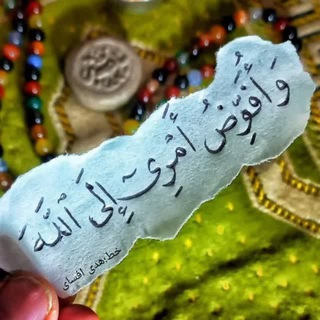 وَأُفَوِّضُ أَمْرِيٓ إِلَى اللَّهِ
خط:هدی افسای